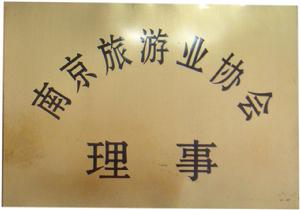 南京旅游业协会
理事